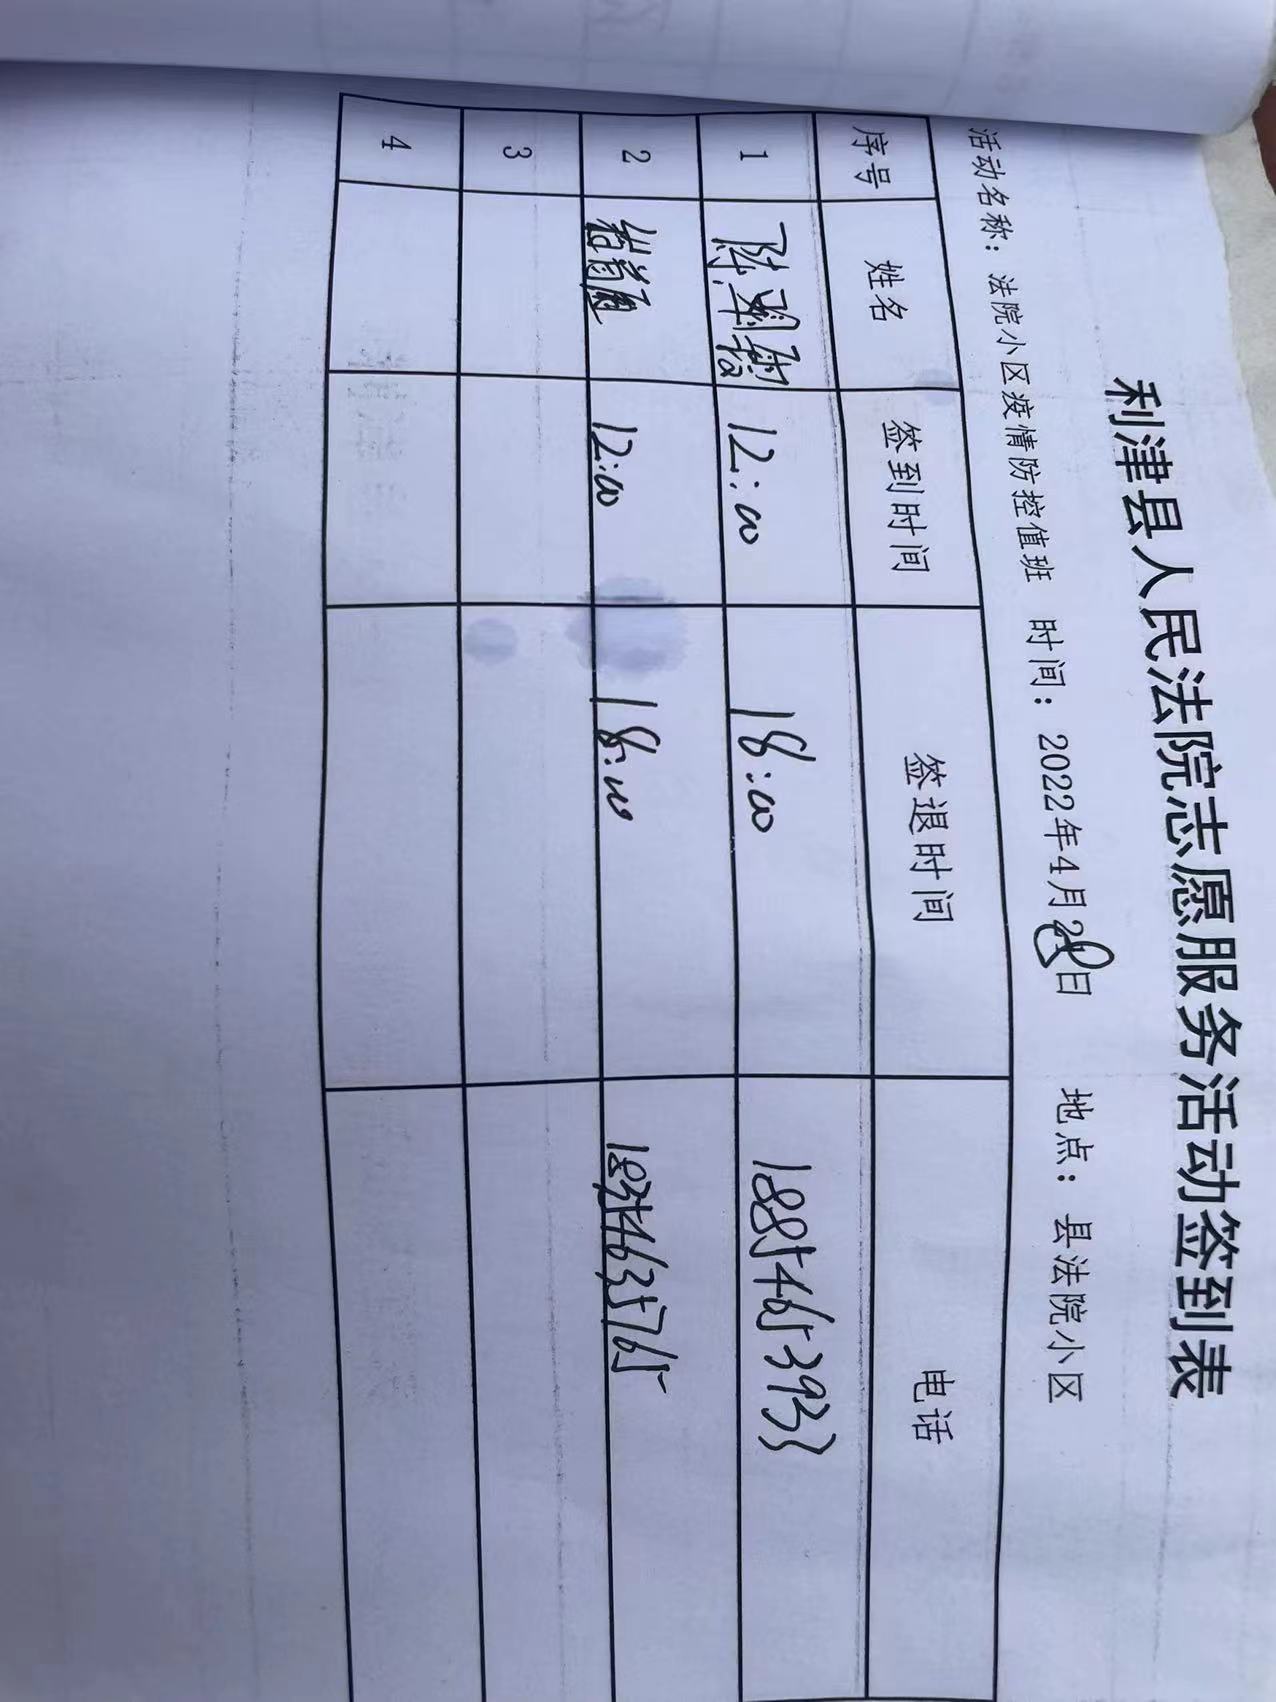 利津县人民法院志愿服务活动签到表
活动名称：法院小区疫情防控值班 时间：2022年4月28日 地点：县法院小区
序号 姓名 签到时间 签退时间 电话
1 12:00 18:00 18854653933
2 12:00 18:00 18354635765
3
4